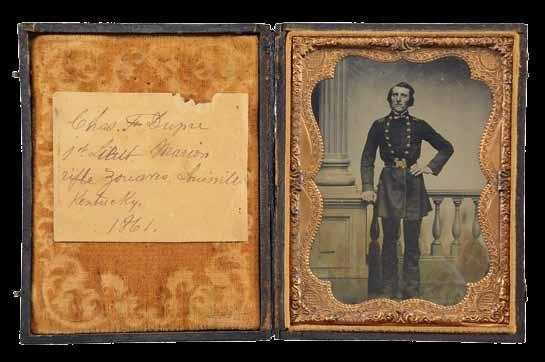 Chas. F. Dupre
1st Lieut Marion
rifle Zouaves, Louisville
Kentucky.
1861.